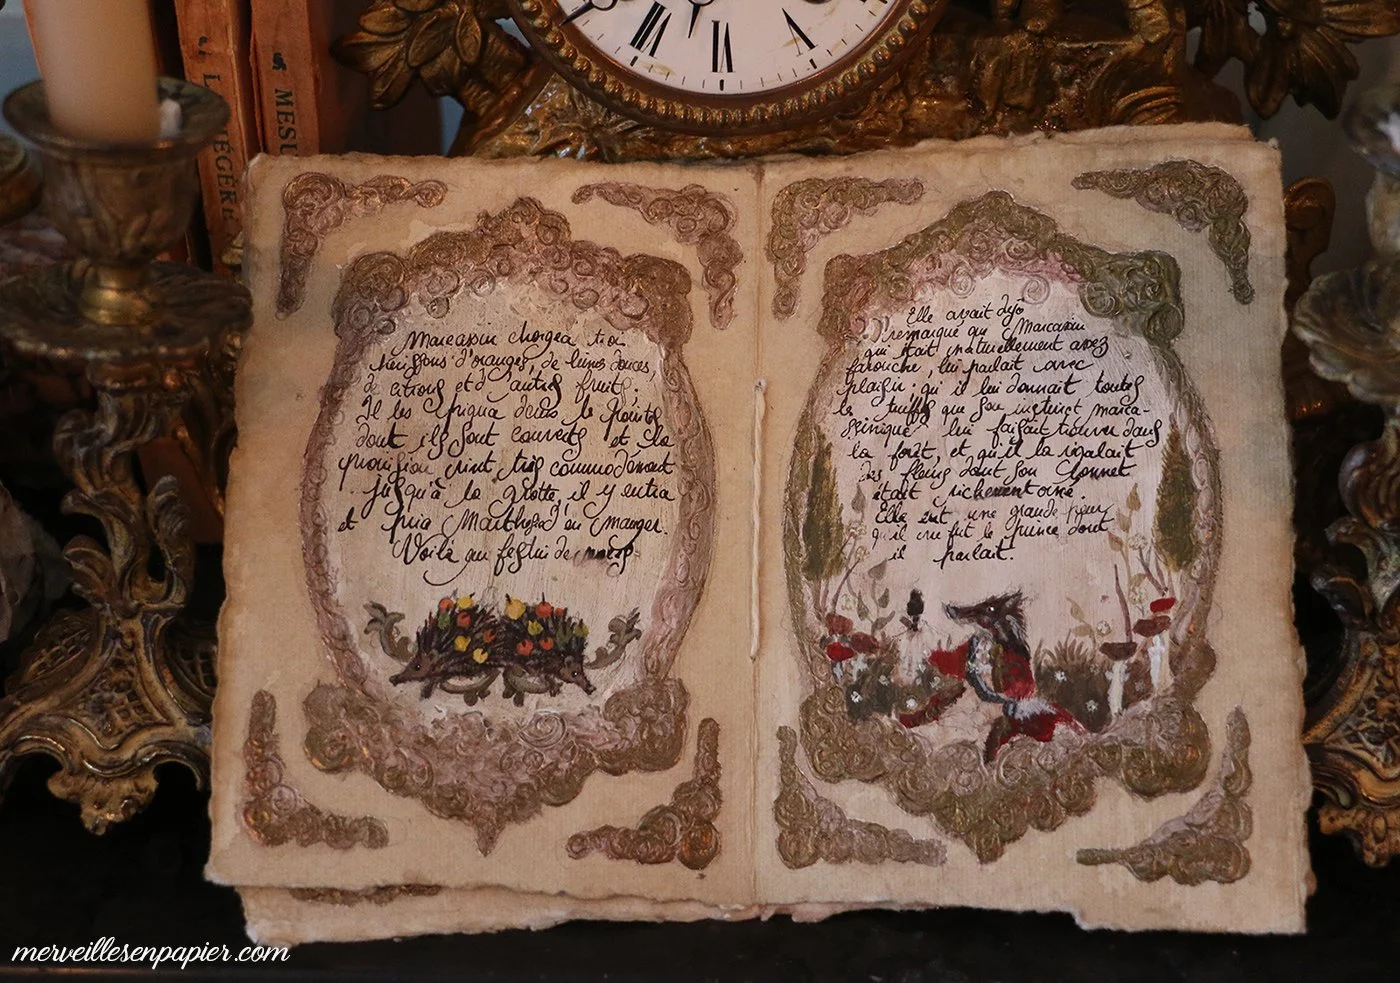 L
LÉGÈRE
MESU
Marcassin chargea trois
hérissons d'oranges, de limes douces,
de citrons et d'autres fruits.
Il les piqua dans les pointes
dont ils sont couverts et la
provision vint très commodément
jusqu'à la grotte, il y entra
et pria Marthesie d'en manger.
Voilà un festin de
Elle avait déjà
remarqué que Marcassin
qui était naturellement assez
farouche, lui parlait avec
plaisir, qu'il lui donnait toutes
les truffes que son instinct marca-
ssinique lui faisait trouver dans
la forêt, et qu'il la régalait
des fleurs dont son bonnet
était richement orné.
Elle eut une grande peur
qu'il ne fut le prince dont
il parlait.
merveillesenpapier.com